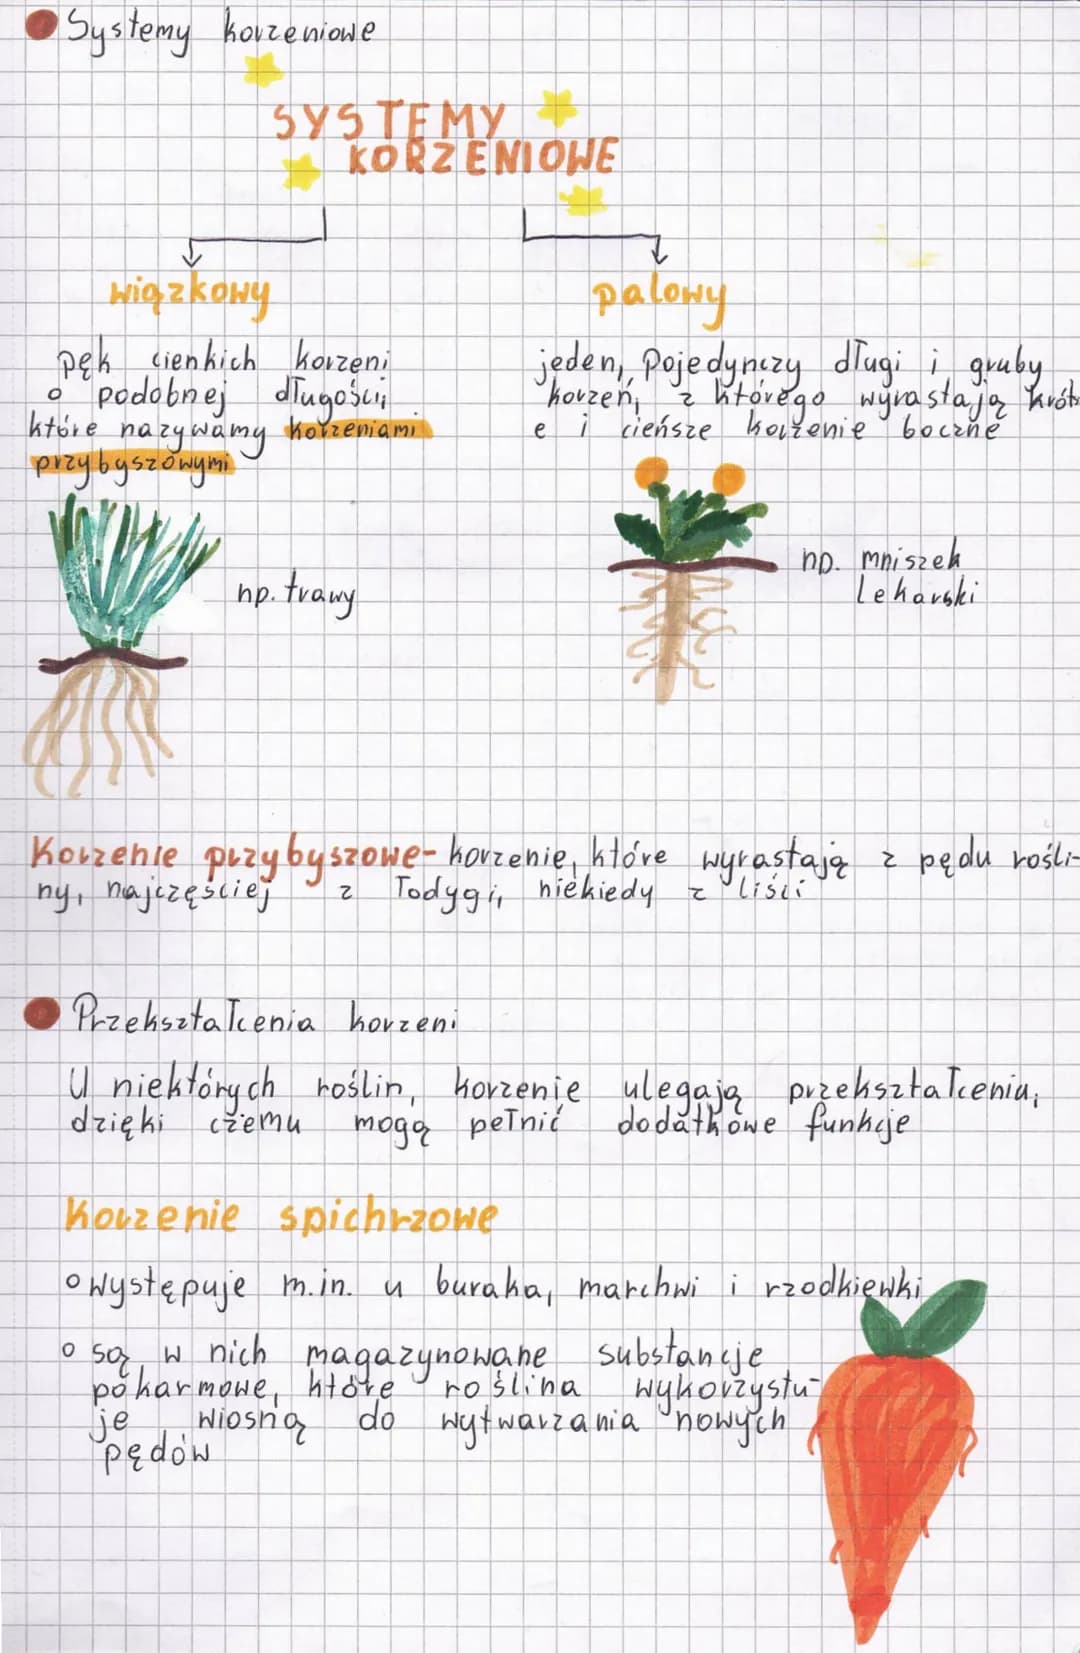 Systemy korzeniowe
SYSTEMY
KORZENIOWE
wiązkowy
pęk cienkich korzeni
o podobnej długości,
które nazywamy korzeniami
przybyszowymi
np. trawy
palowy
jeden, pojedynczy długi i gruby
korzeń, z którego wyrastają krótsz
e i cieńsze korzenie boczne
np. mniszek
lekarski
Korzenie przybyszowe- korzenie, które wyrastają z pędu rośli-
ny, najczęściej z łodygi, niekiedy z liści
Przekształcenia korzeni
U niektórych roślin, korzenie ulegają przekształceniu,
dzięki czemu mogą pełnić dodatkowe funkcje
Korzenie spichrzowe
występuje m.in. u buraka, marchwi i rzodkiewki
są w nich magazynowane substancje
pokarmowe, które roślina wykorzystu-
je wiosną do wytwarzania nowych
pędów